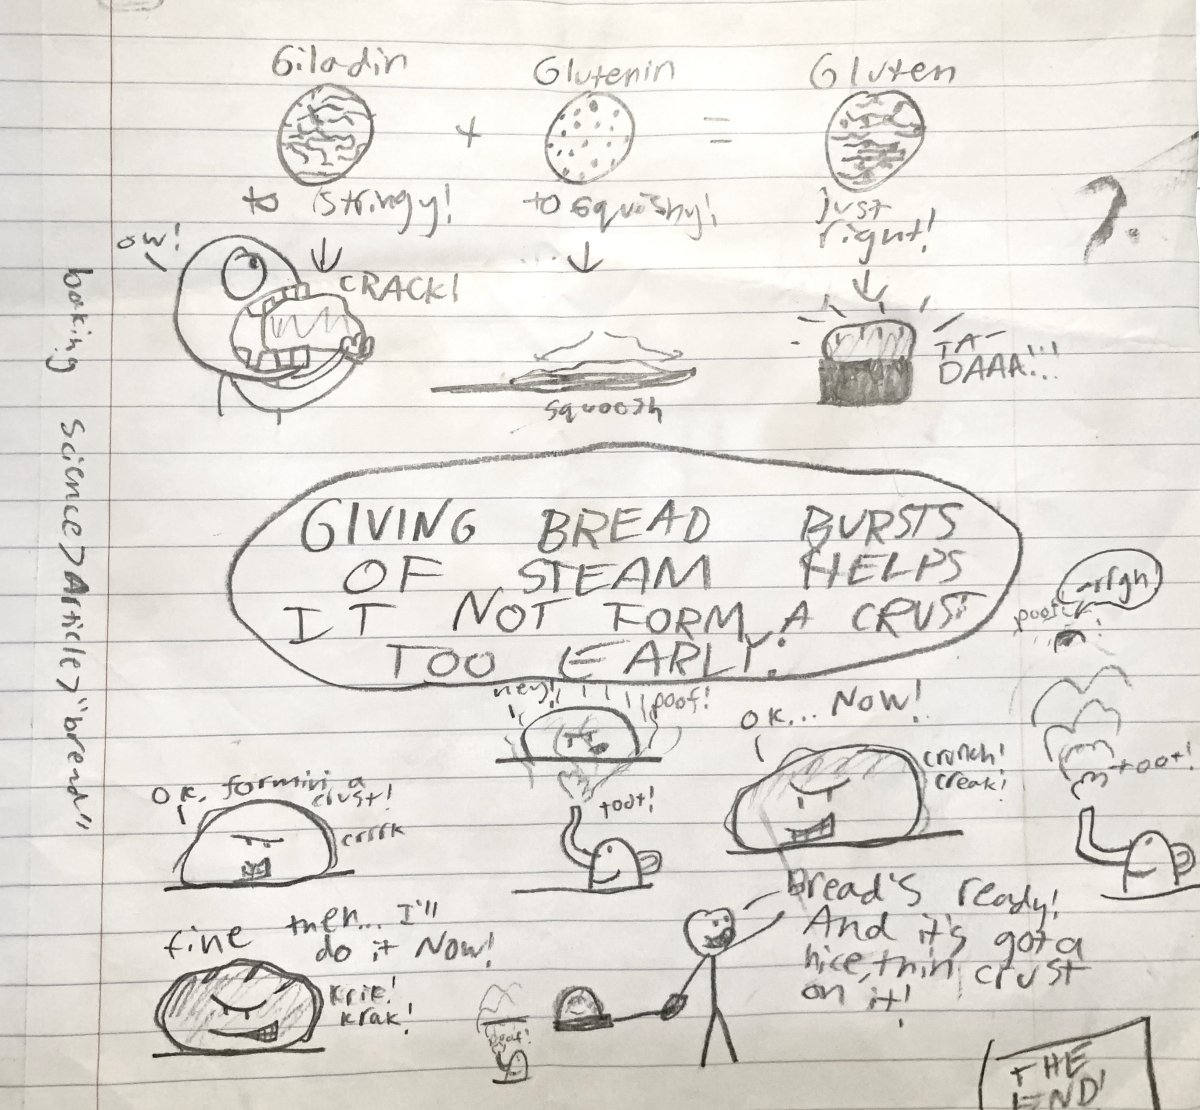 Giladin
Glutenin
Gluten
+
=
to stringy!
to squishy!
just
right!
?
ow!
CRACK!
squoosh
TA-
DAAA!!!
baking science > Article > "bread"
GIVING BREAD BURSTS
OF STEAM HELPS
IT NOT FORM A CRUST
TOO EARLY.
arrgh!
poof!
hey!
poof!
OK... Now!
crunch!
creak!
toot!
OK, formin a
crust!
crrrk
toot!
fine then... I'll
do it Now!
krik!
krak!
Bread's ready!
And it's got a
nice, thin crust
on it!
THE
END!